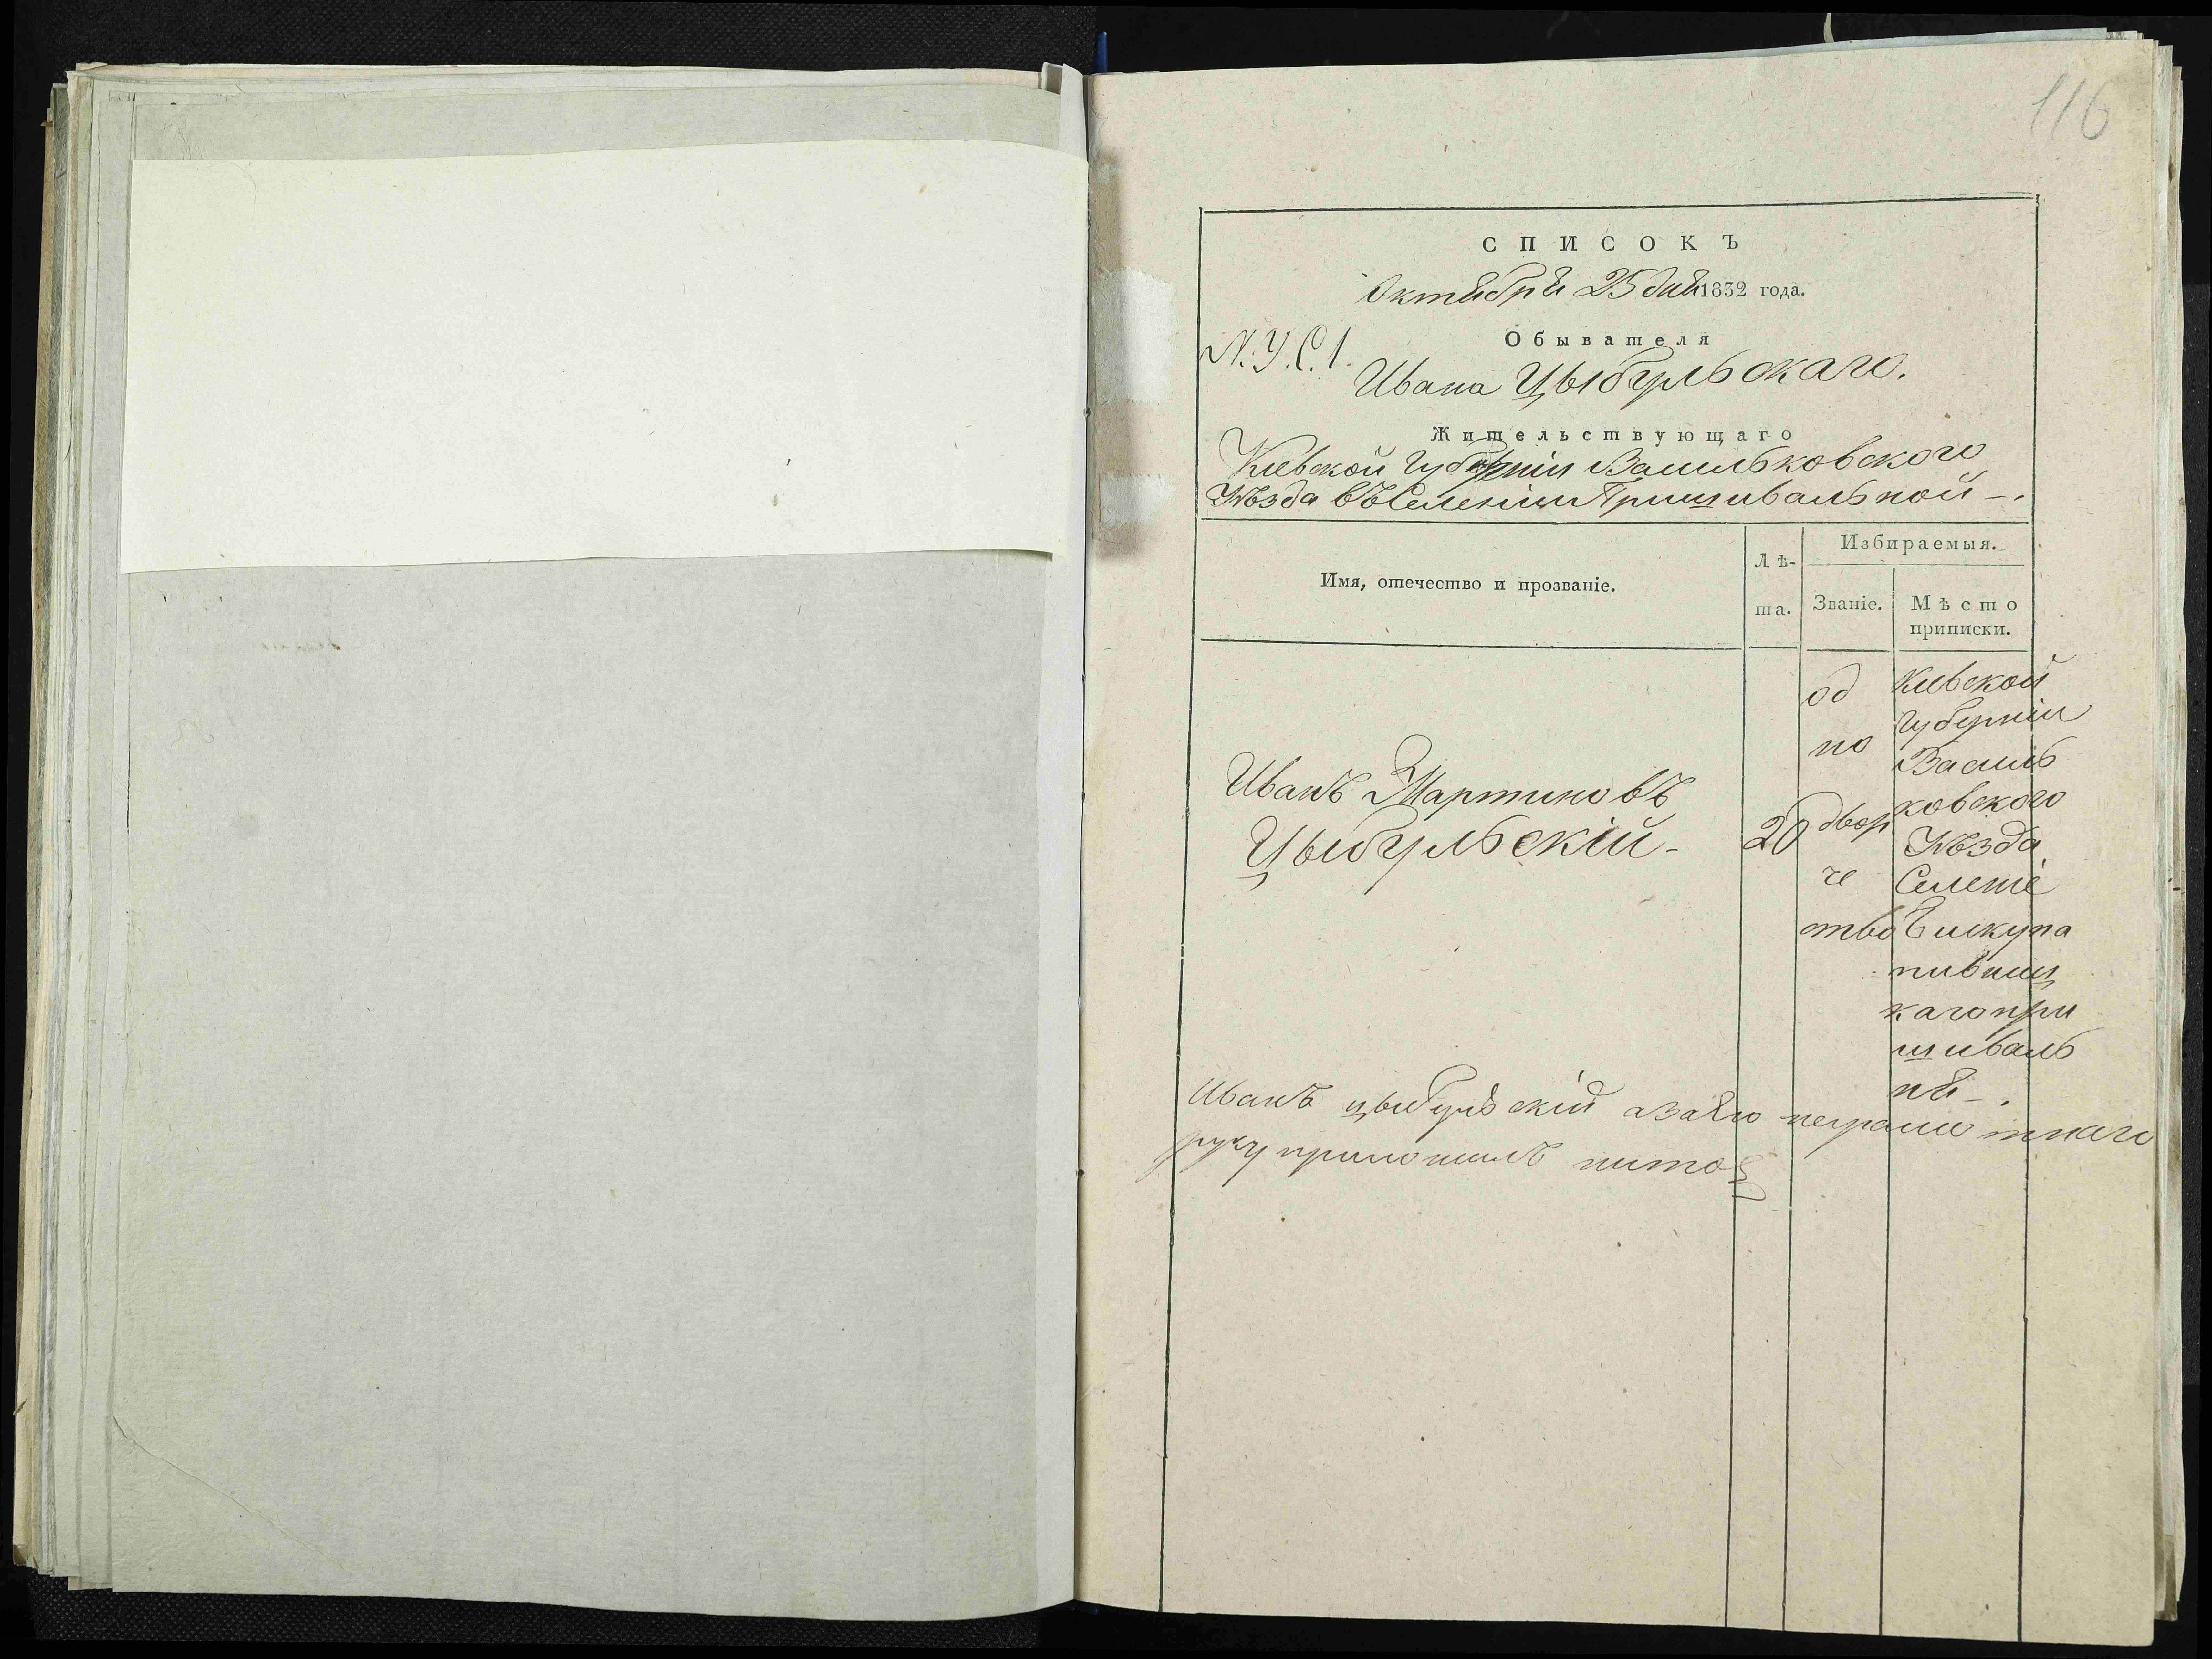 116
СПИСОКЪ
Октября 25 дня 1832 года.
Обывателя
N. У. С. 1.
Ивана Цыбульскаго.
Жительствующаго
Киевской Губерніи Васильковского
Уѣзда въ Селеніи Пришивальной -.
Имя, отечество и прозваніе.
Лѣ-
та.
Избираемыя.
Званіе.
Мѣсто
приписки.
Иванъ Мартиновъ
Цыбульскій -
20
од
но
двор
че
ство
Киевской
Губерніи
Василь
ковского
Уѣзда
Селеніе
каго при
шиваль
ня -.
Иванъ цыбульскій а за его неграмотнаго
руку приложилъ